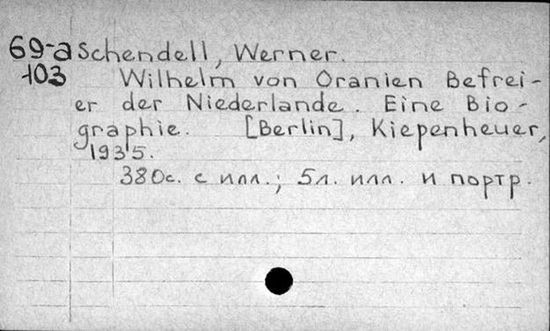 69-а Schendell, Werner.
103 Wilhelm von Oranien Befrei-
er der Niederlande. Eine Bio-
graphie. [Berlin], Kiepenheuer,
1935.
380с. с илл.; 5л. илл. и портр.